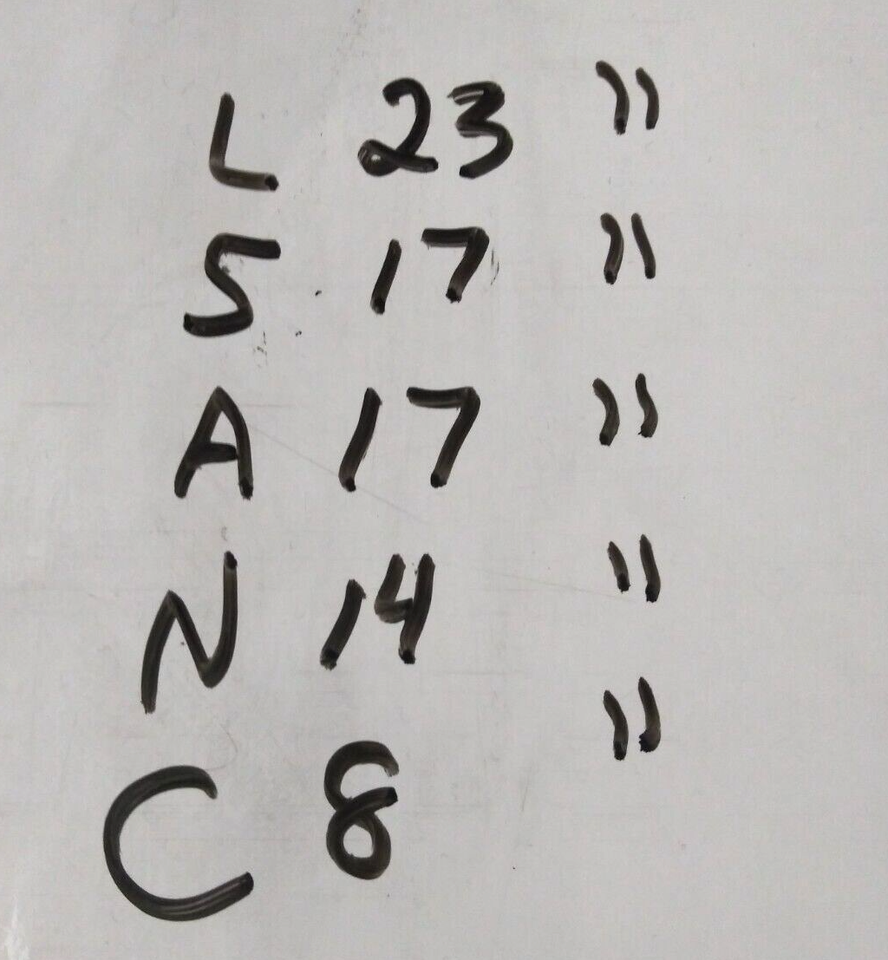 L 23 "
S 17 "
A 17 "
N 14 "
C 8 "